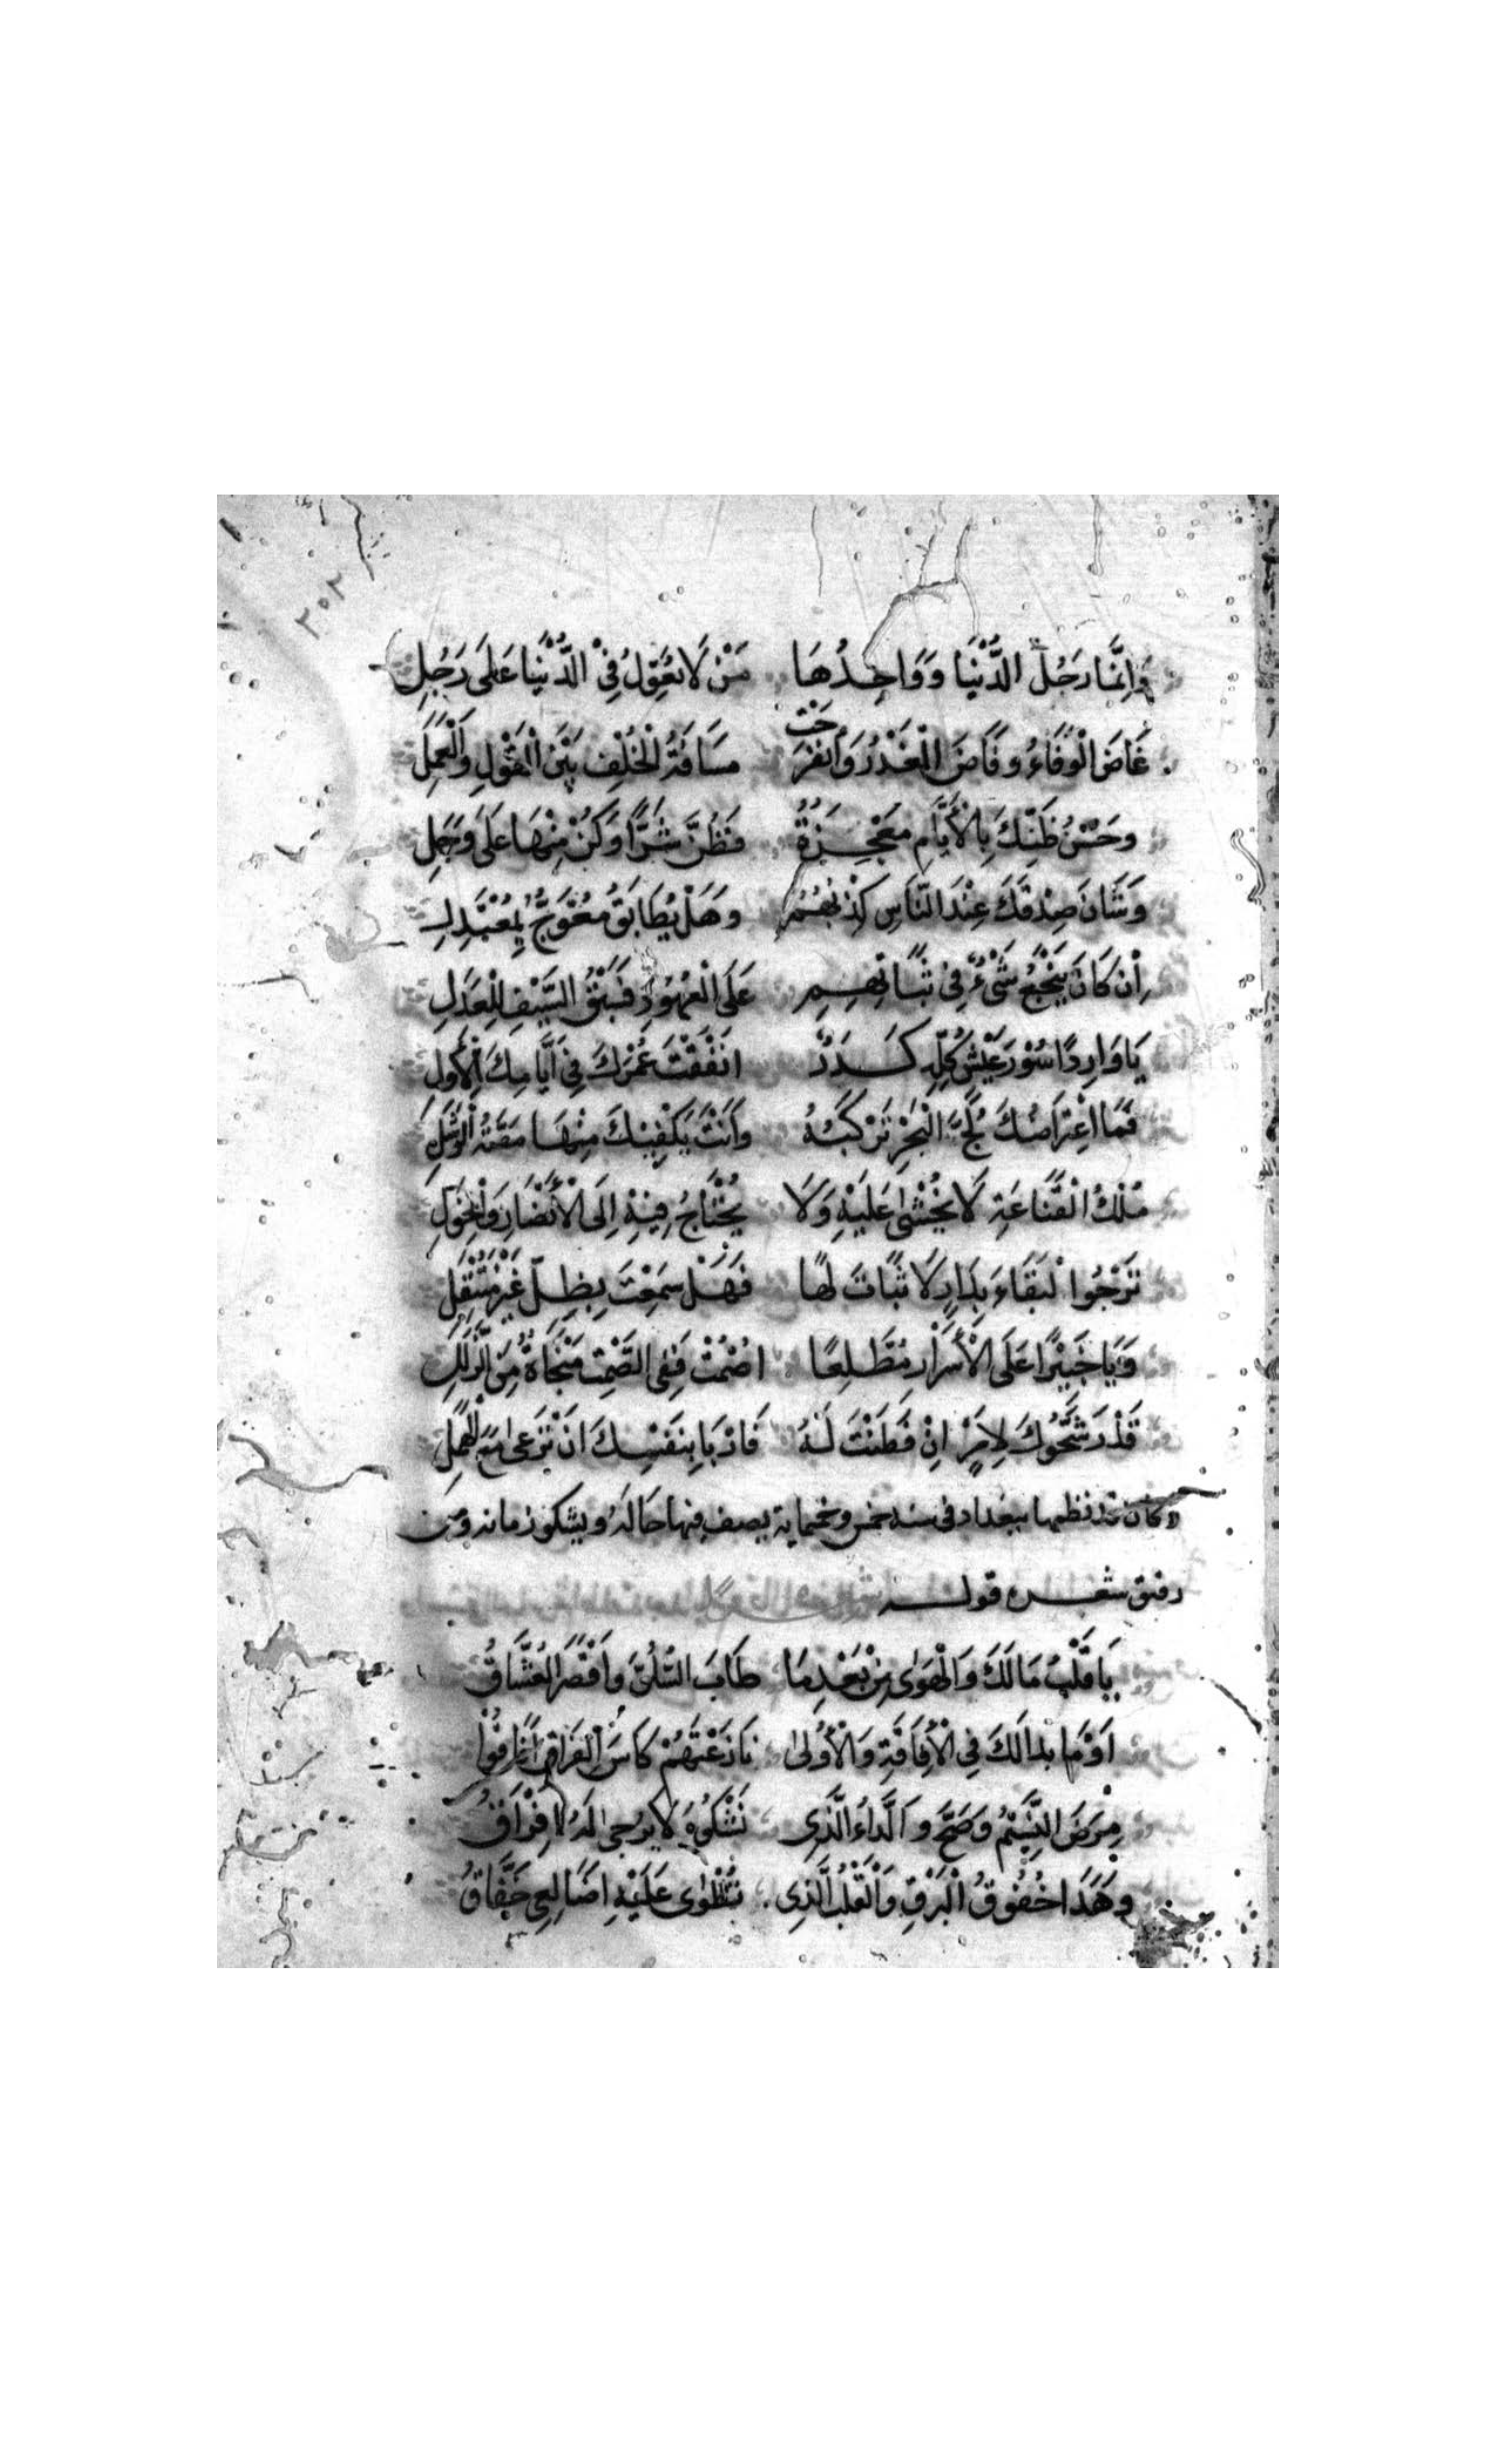 ٢٠٢
وَاِنَّمَا رَجُلُ الدُّنْيَا وَوَاحِدُهَا مَنْ لَا يُعَوِّلُ فِي الدُّنْيَا عَلَى رَجُلِ
غَاضَ الْوَفَاءُ وَفَاضَ الْغَدْرُ وَانْفَرَجَتْ مَسَافَةُ الْخُلْفِ بَيْنَ الْقَوْلِ وَالْعَمَلِ
وَحُسْنُ ظَنِّكَ بِالْأَيَّامِ مَعْجِزَةٌ فَظُنَّ شَرًّا وَكُنْ مِنْهَا عَلَى وَجَلِ
وَشَانَ صِدْقَكَ عِنْدَ النَّاسِ كِذْبُهُمُ وَهَلْ يُطَابَقُ مُعْوَجٌّ بِمُعْتَدِلِ
اِنْ كَانَ يَنْجَعُ شَيْءٌ فِي ثَبَاتِهِمِ عَلَى الْعُهُودِ فَسَبْقُ السَّيْفِ لِلْعَذَلِ
يَا وَارِدًا سُوْرَ عَيْشٍ كُلُّهِ كَدَرٌ اَنْفَقْتَ عُمْرَكَ فِي اَيَّامِكَ الْأُوَلِ
فَمَا اعْتِرَاضُكَ لُجَّ الْبَحْرِ تَرْكَبُهُ وَاَنْتَ يَكْفِيْكَ مِنْهَا مَصَّةُ الْوَشَلِ
مُلْكُ الْقَنَاعَةِ لَا يُخْشَى عَلَيْهِ وَلَا يُحْتَاجُ فِيْهِ اِلَى الْأَنْصَارِ وَالْخَوَلِ
تَرْجُوا لْبَقَاءَ بِدَارٍ لَا ثَبَاتَ لَهَا فَهَلْ سَمِعْتَ بِظِلٍّ غَيْرِ مُنْتَقِلِ
وَيَا خَبِيْرًا عَلَى الْأَسْرَارِ مُطَّلِعًا اصْمُتْ فَفِي الصَّمْتِ مَنْجَاةٌ مِنَ الزَّلَلِ
قَدْ رَشَّحُوكَ لِاَمْرٍ اِنْ فَطَنْتَ لَهُ فَارْبَا بِنَفْسِكَ اَنْ تَرْعَى مَعَ الْهَمَلِ
وكان نظمها ببغداد في سنه خمس وخمماية يصف فيها حَالَهُ ويشكو زمانه ومن
رقيق شعره قوله
يَا قَلْبُ مَا لَكَ وَالْهَوَى مِنْ بَعْدِ مَا طَابَ السُّلُوُّ وَاَقْصَرَ الْعُشَّاقُ
اَوَمَا بدا لَكَ فِي الْأِفَاقَةِ وَالْأُولَى نَازَعْتَهُمْ كَاسَ الْغَرَامِ اَفَاقُوْا
مَرِضَ النَّسِيْمُ وَصَحَّ وَالدَّاءُ الَّذِي تَشْكُوْهُ لَا يُرْجَى لَهُ اِفْرَاقُ
وَهَدَا خُفُوقُ الْبَرْقِ وَالْقَلْبُ الَّذِي تُطْوَى عَلَيْهِ اَضَالِعِي خَفَّاقُ